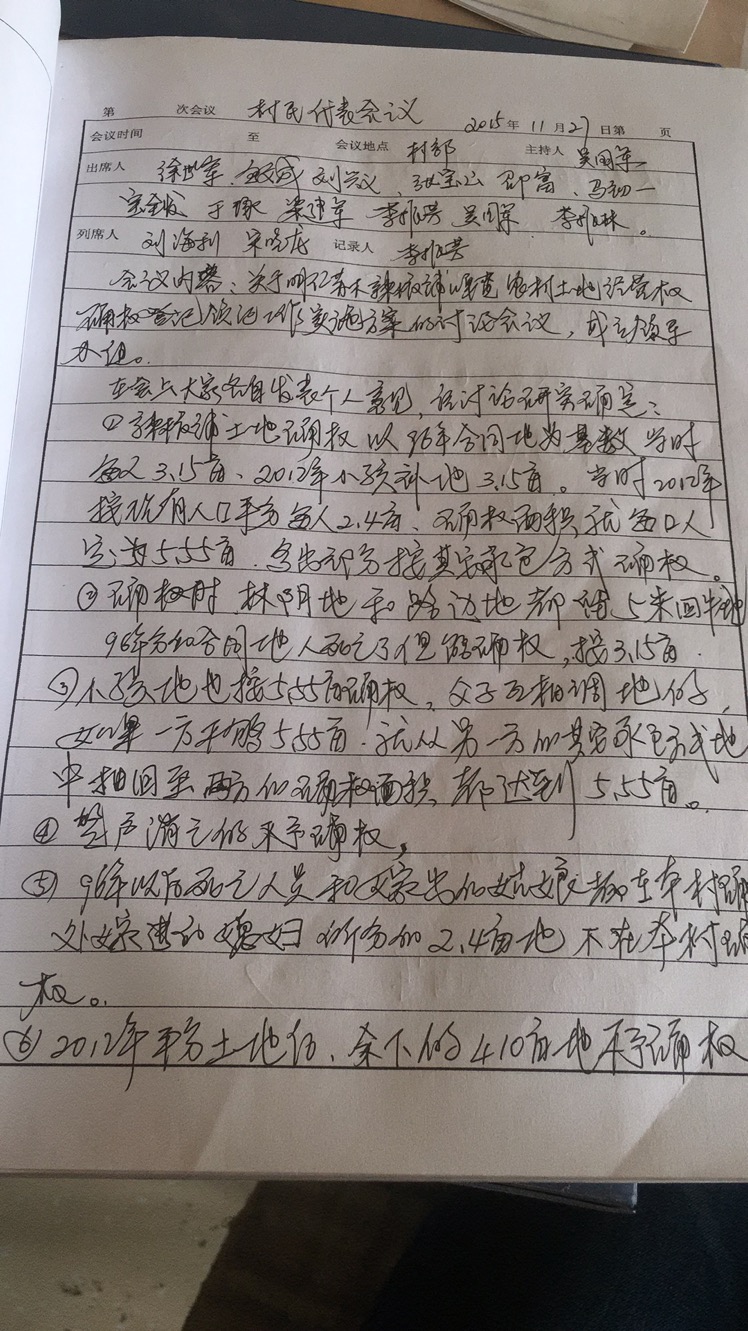 第 次会议 村民代表会议 2015年11月27日第 页
会议时间 至 会议地点 村部 主持人 吴国军
出席人 徐世军 刘兴议 张宝山 邵富 马
于 梁 军 李 吴国军 李 林。
列席人 刘海利 宋晓龙 记录人 李
会议内容：关于明仁苏木 农村土地经营权
确权登记 工作实施方案的讨论会议，成立领导
办组。
在会上大家各自发表个人意见，经讨论研究确定：
① 土地确权以96年合同地为基数 当时
每人3.15亩、2012年小孩补地3.15亩。当时2012年
按现有人口平分每人2.4亩、确权面积就每口人
定为5.55亩．多出部分按其它承包方式确权。
②确权时．林阴地和路边地都 5米
96年分的合同地人死亡了但 确权，按3.15亩．
③小孩地也按5.55亩确权、父子互相调地的，
如果一方不够5.55亩．就从另一方的其它承包方式地
中抽回至两方的确权面积，都达到5.55亩。
④整户消亡的不予确权，
⑤96年以后死亡人员和 嫁出的姑娘都在本村确
外嫁进的媳妇所分的2.4亩地不在本村确
权。
⑥2012年平分土地后、余下的410亩地不予确权